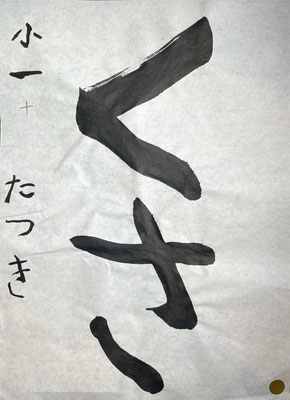 くさ
小一 たつき